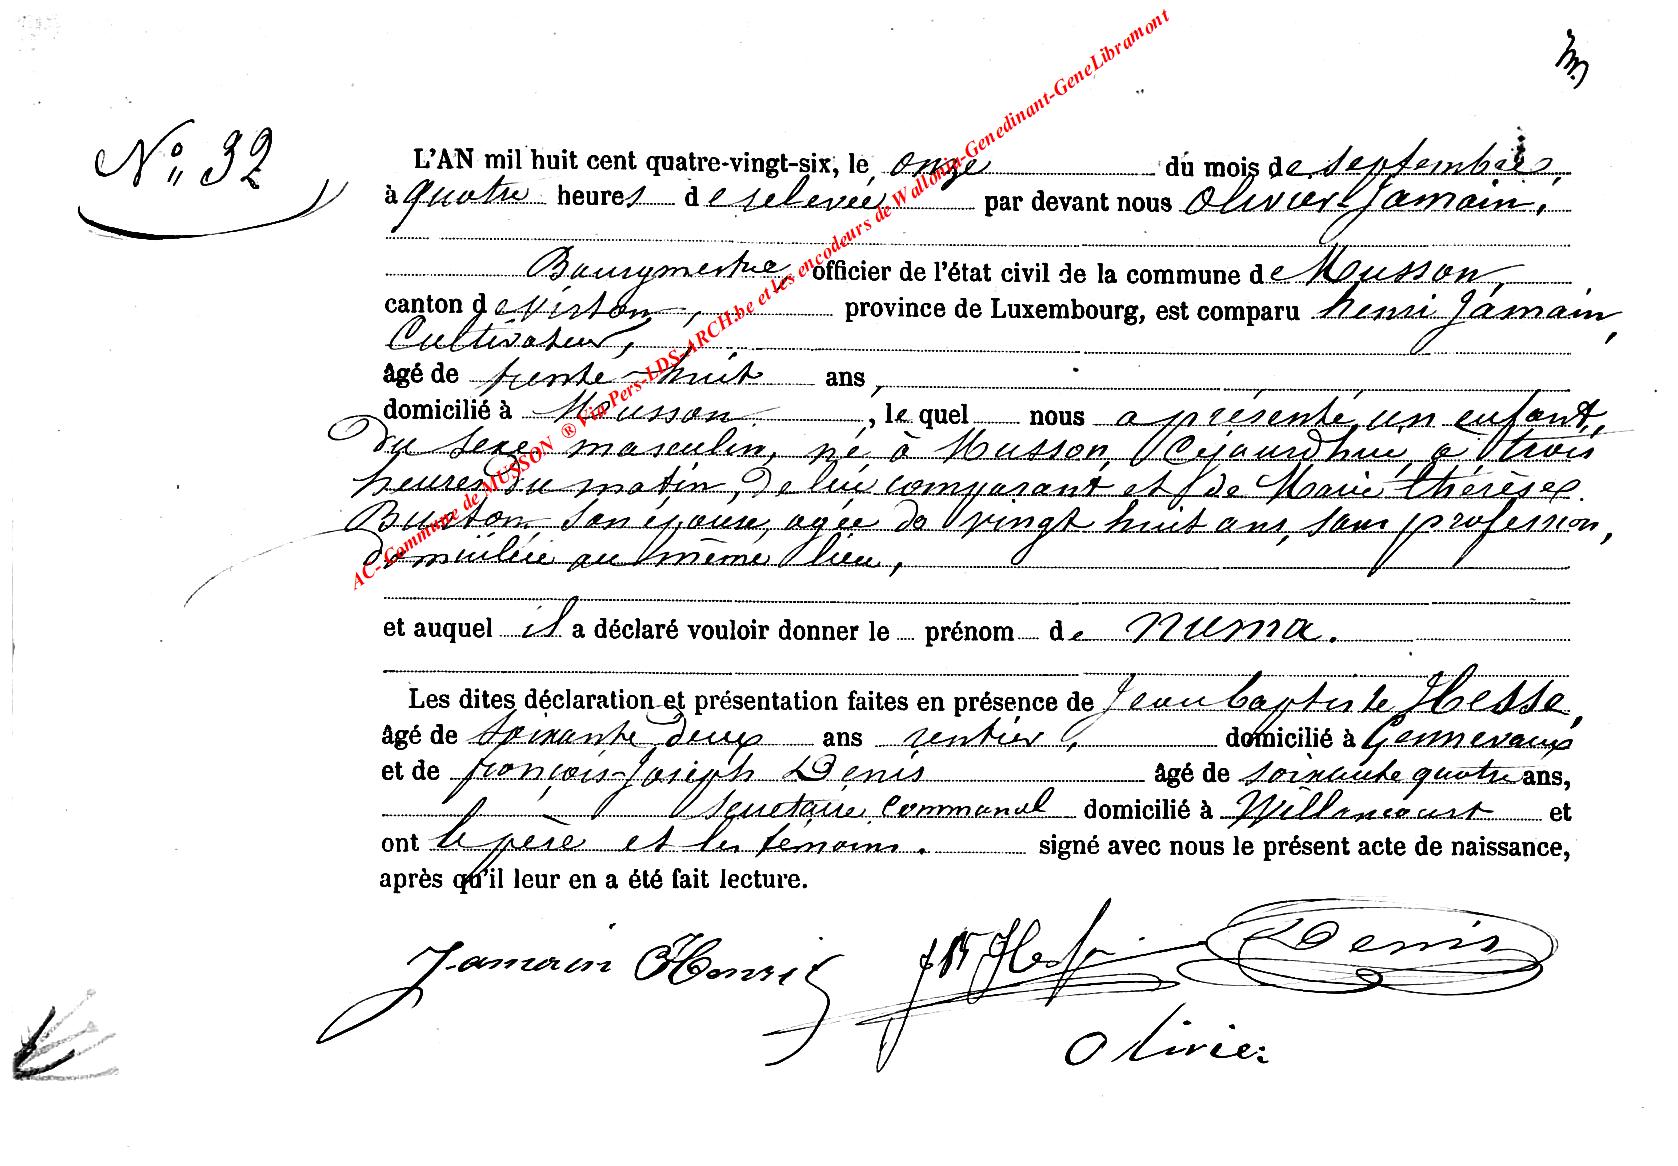 No 32
L'AN mil huit cent quatre-vingt-six, le onze du mois de septembre,
à quatre heures de relevée par devant nous Olivier Jamain,
Bourgmestre, officier de l'état civil de la commune de Musson,
canton de Virton, province de Luxembourg, est comparu henri Jamain,
Cultivateur,
âgé de trente-huit ans,
domicilié à Musson, le quel nous a présenté un enfant,
du sexe masculin, né à Musson, Cejourd'hui, à trois
heures du matin, de lui comparant et de Marie thérèse
Burton, son épouse, agée de vingt huit ans, sans profession,
domiciliée au même lieu,
et auquel il a déclaré vouloir donner le prénom de Numa.
Les dites déclaration et présentation faites en présence de Jean baptiste Hesse,
âgé de soixante deux ans rentier, domicilié à Gennevaux
et de françois-Joseph Denis âgé de soixante quatre ans,
secretaire communal domicilié à Willancourt et
ont le père et les témoins. signé avec nous le présent acte de naissance,
après qu'il leur en a été fait lecture.
Jamain Henri JB Hesse Denis
Olivier
AC-Commune de MUSSON ® Via Pers-LDS-ARCH.be et les encodeurs de Wallonia-Genedinant-GeneLibramont